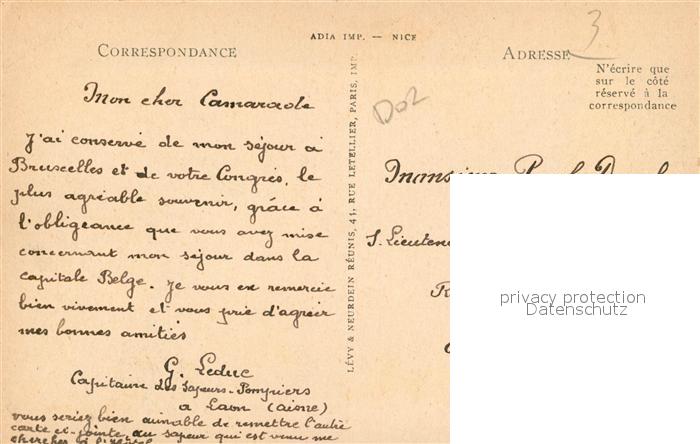 ADIA IMP. — NICE
3
CORRESPONDANCE
ADRESSE
N'écrire que
sur le côté
réservé à la
correspondance
D02
Mon cher Camarade
J'ai conservé de mon séjour à
Bruxelles et de votre Congrès, le
plus agréable souvenir, grâce à
l'obligeance que vous avez mise
concernant mon séjour dans la
capitale Belge. Je vous en remercie
bien vivement et vous prie d'agréer
mes bonnes amitiés
G. Leduc
Capitaine des Sapeurs-Pompiers
à Laon (Aisne)
vous seriez bien aimable de remettre l'autre
carte ci-jointe au sapeur qui est venu me
chercher à
LÉVY & NEURDEIN RÉUNIS, 41, RUE LETELLIER, PARIS, IMP.
Monsieur
S. Lieuten
privacy protection
Datenschutz